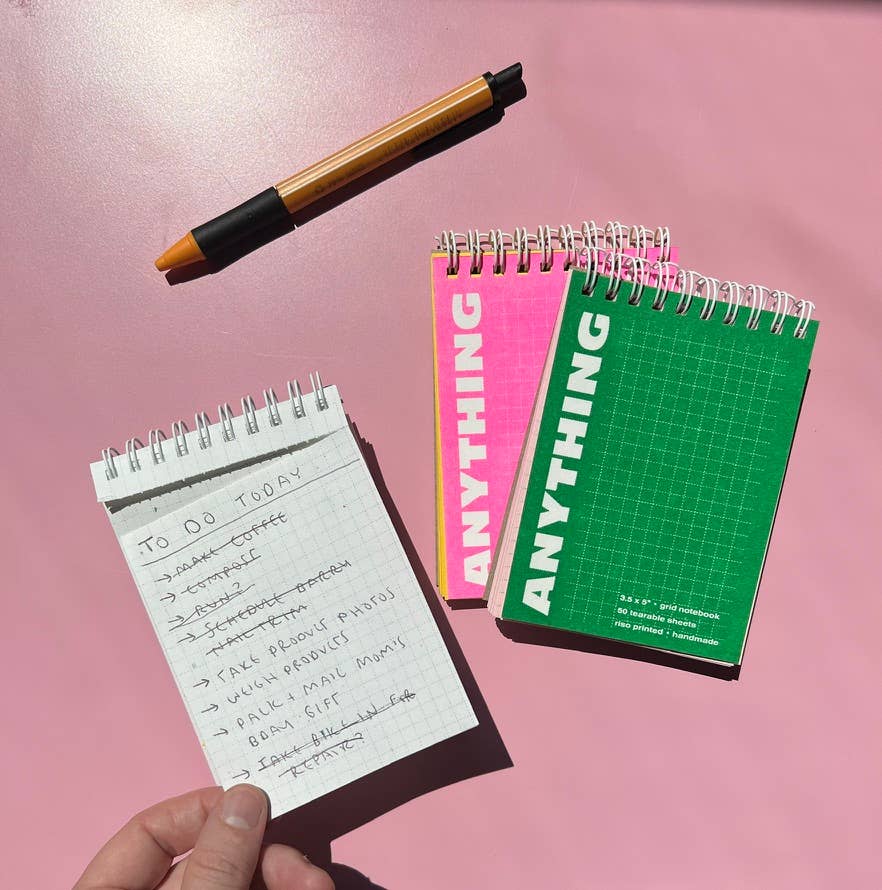 TO DO TODAY
→ MAKE COFFEE
→ COMPOST
→ RUN?
→ SCHEDULE BARRY
NAIL TRIM
→ TAKE PRODUCT PHOTOS
→ WEIGH PRODUCTS
→ PACK + MAIL MOM'S
BDAY GIFT
→ TAKE BIKE IN FOR
REPAIR?
ANYTHING
ANYTHING
3.5 x 5" • grid notebook
50 tearable sheets
riso printed • handmade